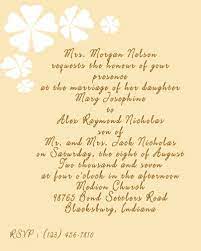 Mrs. Morgan Nelson
requests the honour of your
presence
at the marriage of her daughter
Mary Josephine
to
Alex Raymond Nicholas
son of
Mr. and Mrs. Jack Nicholas
on Saturday, the eight of August
Two thousand and seven
at four o'clock in the afternoon
Modson Church
98765 Bond Setters Road
Blacksburg, Indiana
RSVP : (123) 456-7810